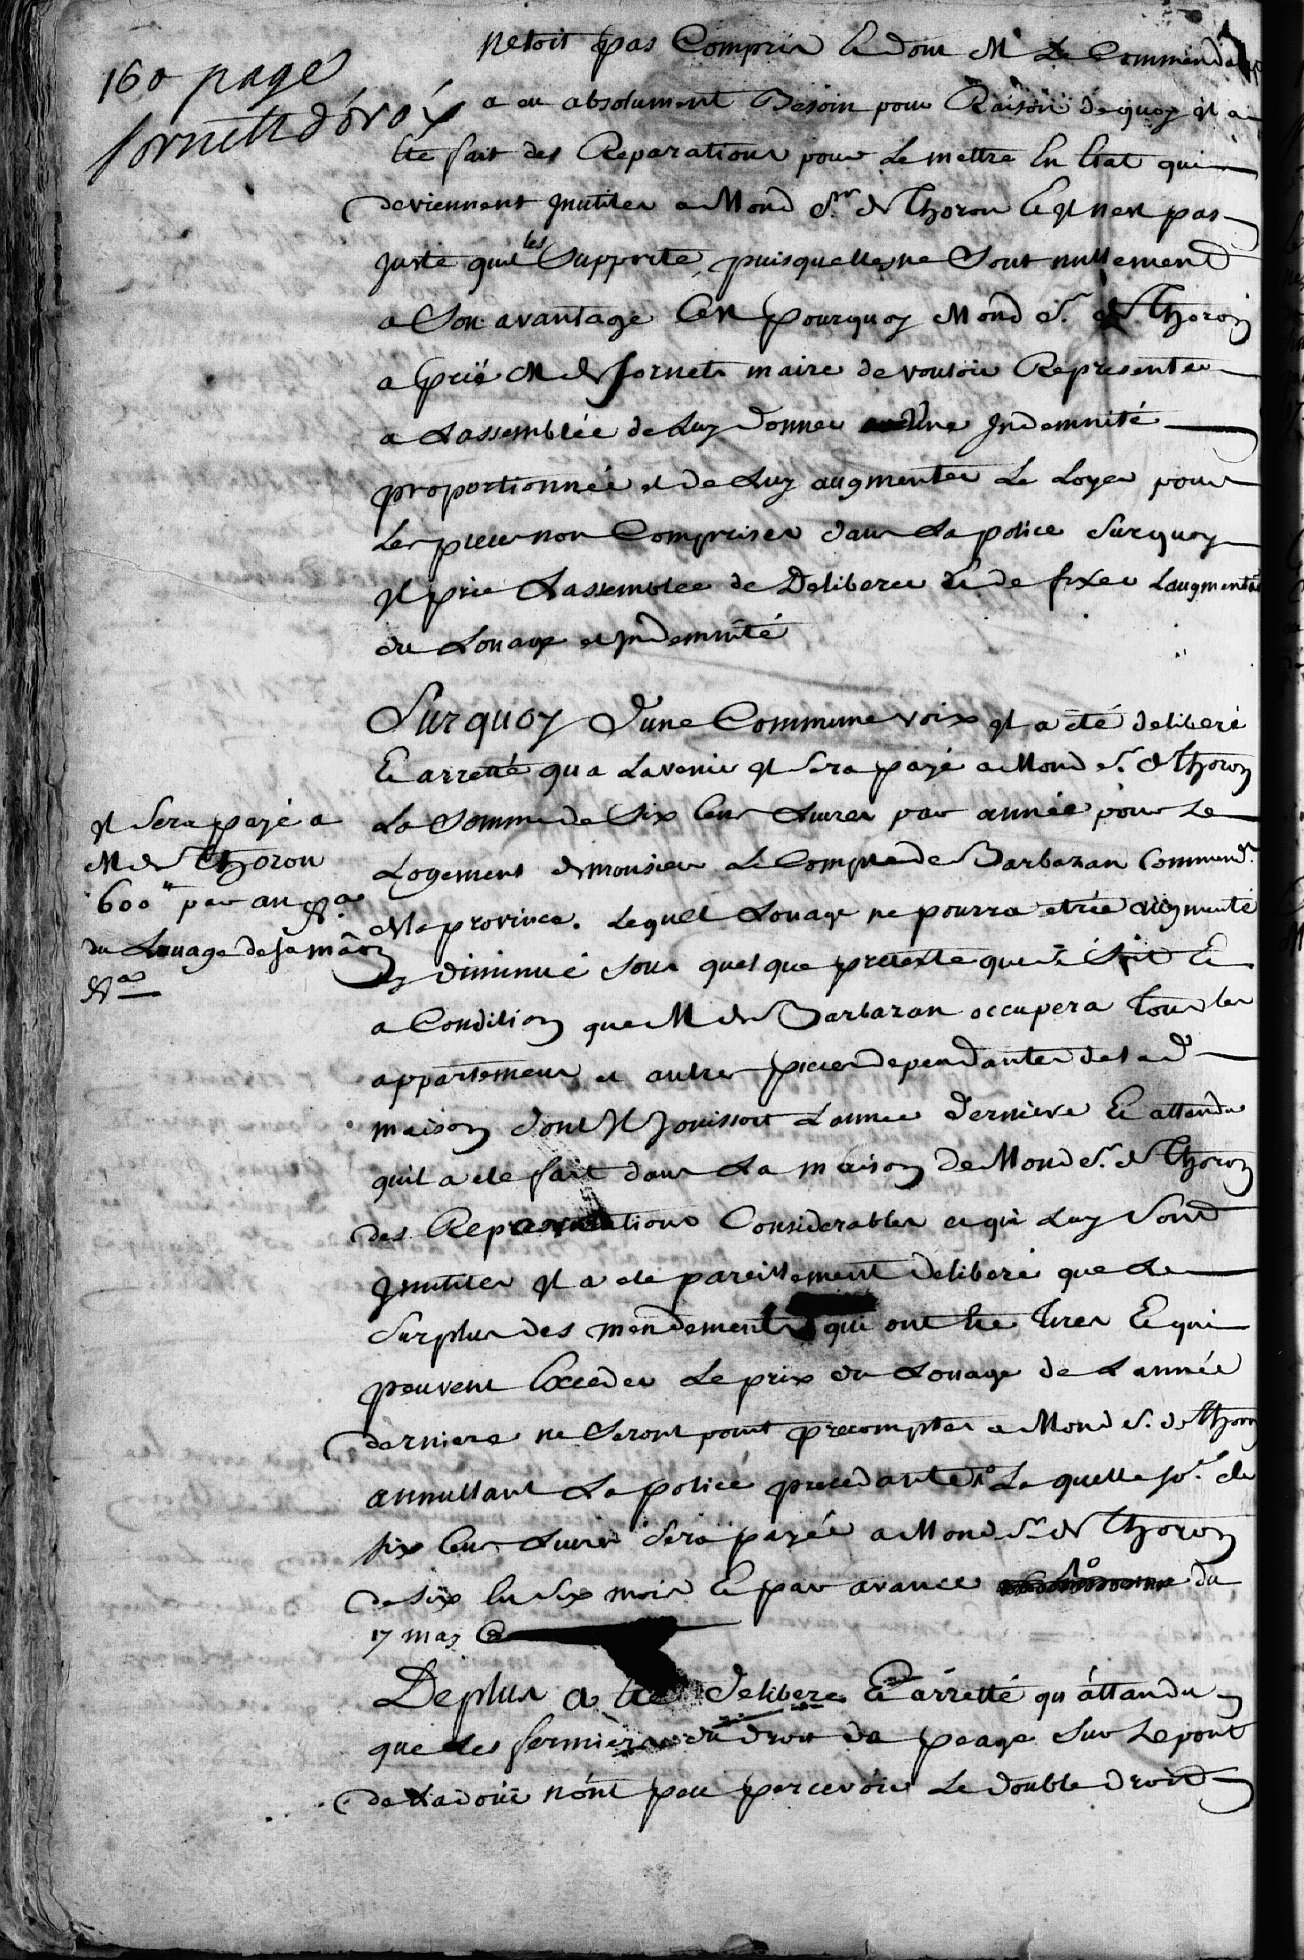 160 page
fornetz d'oroix
netoit pas Compris Et dont Mr Le Commendant
a eu absolument Besoin pour Raison de quoy Il a
Ete fait des Reparations pour Le mettre En Etat qui
deviennent Jnutiles a Mond Sr de Thoron Et Il nest pas
Juste quil les Supporte, puisquelles ne Sont nullement
a Son avantage Cest pourquoy Mond Sr de Thoron
a prié M de fornets maire de vouloir Representer
a Lassemblée de Luy donner une Jndemnité
proportionnée et de Luy augmenter Le Loyer pour
Les pieces non Comprises dans La police Surquoy
Il prie Lassemblée de Deliberer Et de fixer Laugmentaon
du Louage et Jndemnité
Surquoy d'une Commune voix Il a été deliberé
Et arretté qua Lavenir Il Sera payé a Mond Sr de Thoron
La Somme de Six Cens Livres par année pour Le
Logement de monsieur Le Compte de Barbazan Commendt
de la province. Lequel Louage ne pourra etrée augmenté
ny diminué Sous quelque pretexte que ce Soit Et
a Condition que M de Barbazan occupera tous les
appartemens et autres pieces dependantes de lad
maison dont Il Jouissoit Lannée derniere Et attendu
quil a ete fait dans La maison de Mond Sr de Thoron
des Reparations Considerables et qui Luy Sont
Jnutiles Il a ete pareillement deliberé que Le
Surplus des mendements qui ont Ete tirés Et qui
peuvent Exceder Le prix du Louage de Lannée
derniere ne Seront point precomptes a Mond Sr de Thoron
annullant La police precedante La quelle Se de
six Cens Livres Sera payée a Mond Sr de Thoron
de Six En Six mois Et par avance du
17 may
Il Sera payé a
M de Thoron
600ᵗᵗ par an
du Louage de sa maon
De plus a Eté deliberé Et arretté qu'attandu
que Les fermiers du droit da peage Sur Le pont
de Ladoür nont peu percevoir Le double droit